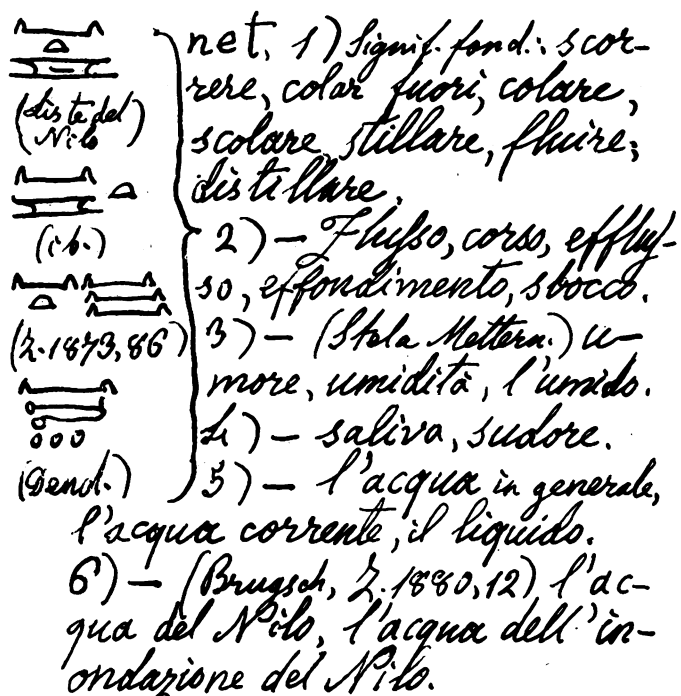 net, 1) Signif. fond.: scor-
rere, colar fuori, colare,
(liste del
Nilo)
scolare, stillare, fluire;
distillare.
(ib.)
2) — Flusso, corso, efflus-
so, effondimento, sbocco.
(Z. 1873, 86)
3) — (Stela Mettern.) u-
more, umidità, l'umido.
4) — saliva, sudore.
(Dend.)
5) — l'acqua in generale,
l'acqua corrente, il liquido.
6) — (Brugsch, Z. 1880, 12) l'ac-
qua del Nilo, l'acqua dell'in-
ondazione del Nilo.